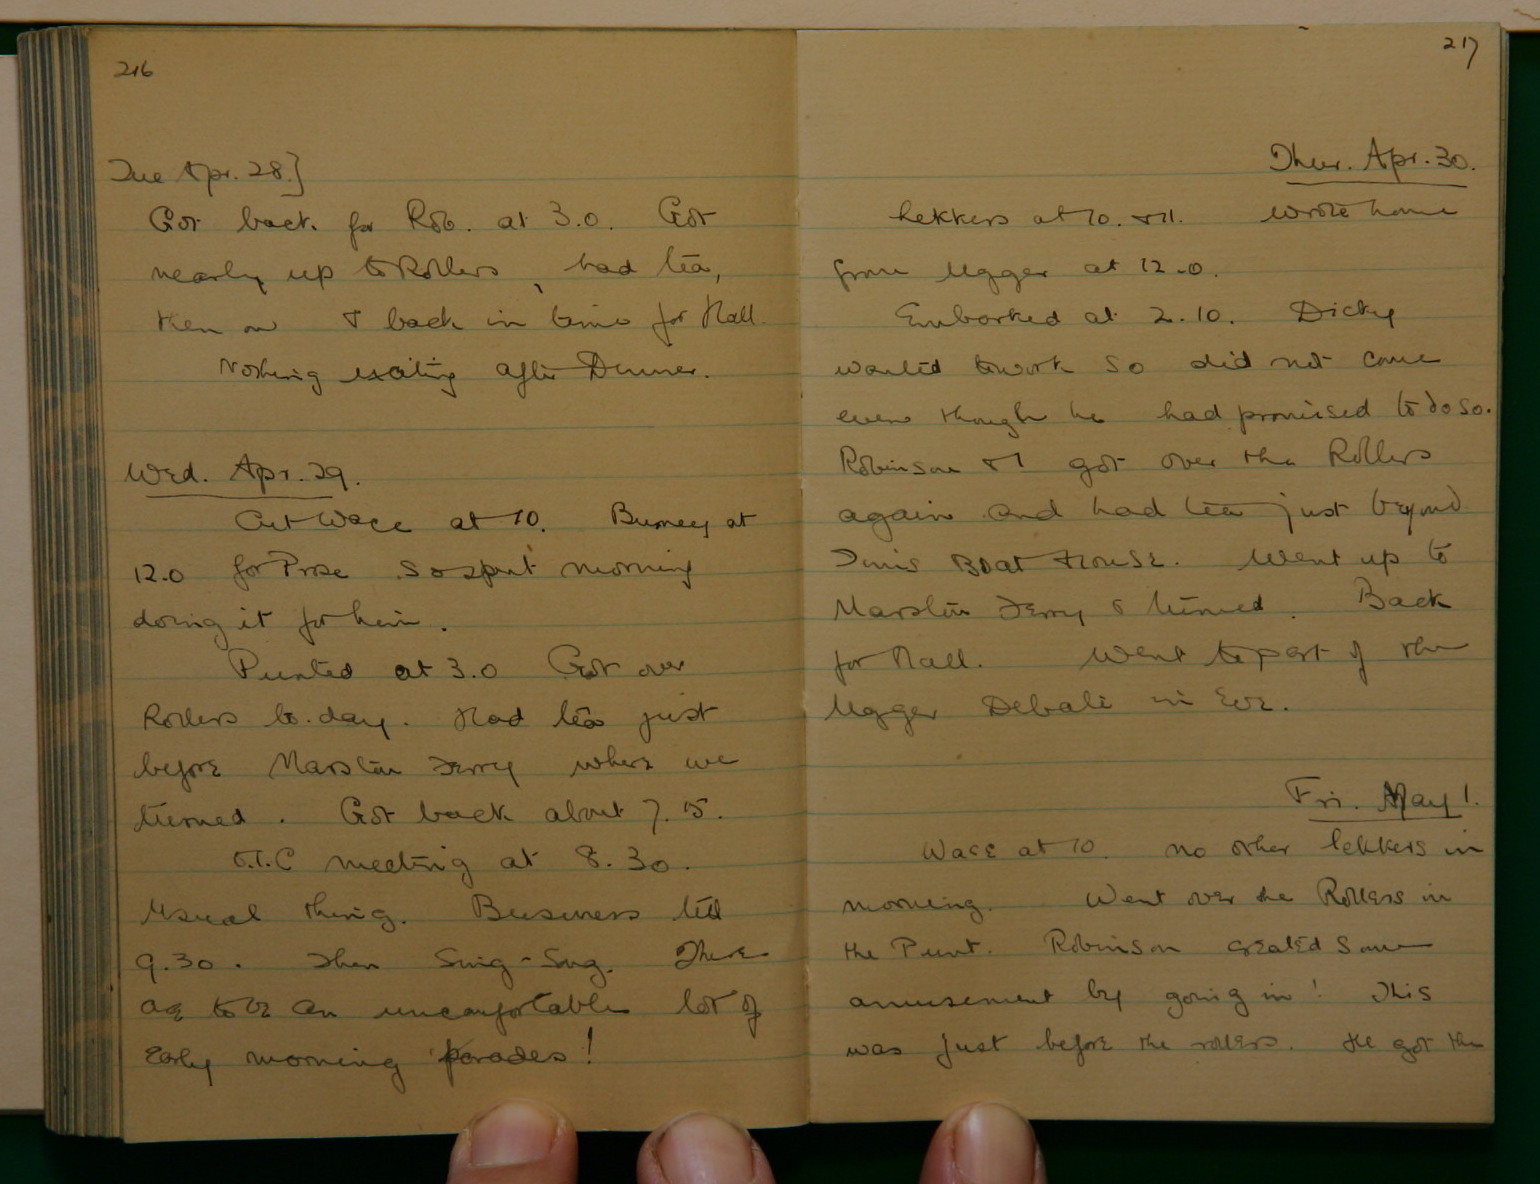 216
Tue Apr. 28.]
Got back for Rob. at 3.0. Got
nearly up to Rollers, had tea,
then on & back in time for Hall.
Nothing exciting after Dinner.
Wed. Apr. 29.
Cut Wace at 10. Burney at
12.0 for Prose so spent morning
doing it for him.
Punted at 3.0 Got over
Rollers to-day. Had tea just
before Marston Ferry where we
turned. Got back about 7.15.
O.T.C meeting at 8.30.
Usual thing. Business till
9.30. Then Sing-Song. There
are to be an uncomfortable lot of
early morning parades!
217
Thur. Apr. 30.
Lekkers at 10. & 11. Wrote home
from Ugger at 12.0.
Embarked at 2.10. Dicky
wanted to work so did not come
even though he had promised to do so.
Robinson & I got over the Rollers
again and had tea just beyond
Tims Boat House. Went up to
Marston Ferry & turned. Back
for Hall. Went to part of the
Ugger Debate in Eve.
Fri. May 1.
Wace at 10. no other lekkers in
morning. Went over the Rollers in
the Punt. Robinson created some
amusement by going in! This
was just before the rollers. He got the